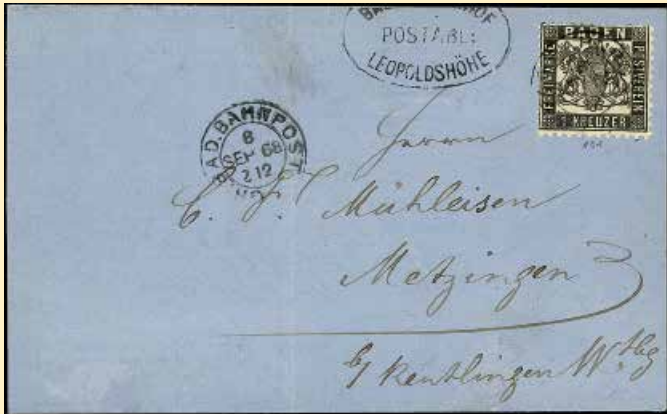 POSTABL:
LEOPOLDSHÖHE
BADEN
FREIMARKE
POSTVEREIN
1 KREUZER
BAD. BAHNPOST
8
SEP 68
Z 12
Herrn
C. F. Mühleisen
Metzingen
b/ Reutlingen Wttbg